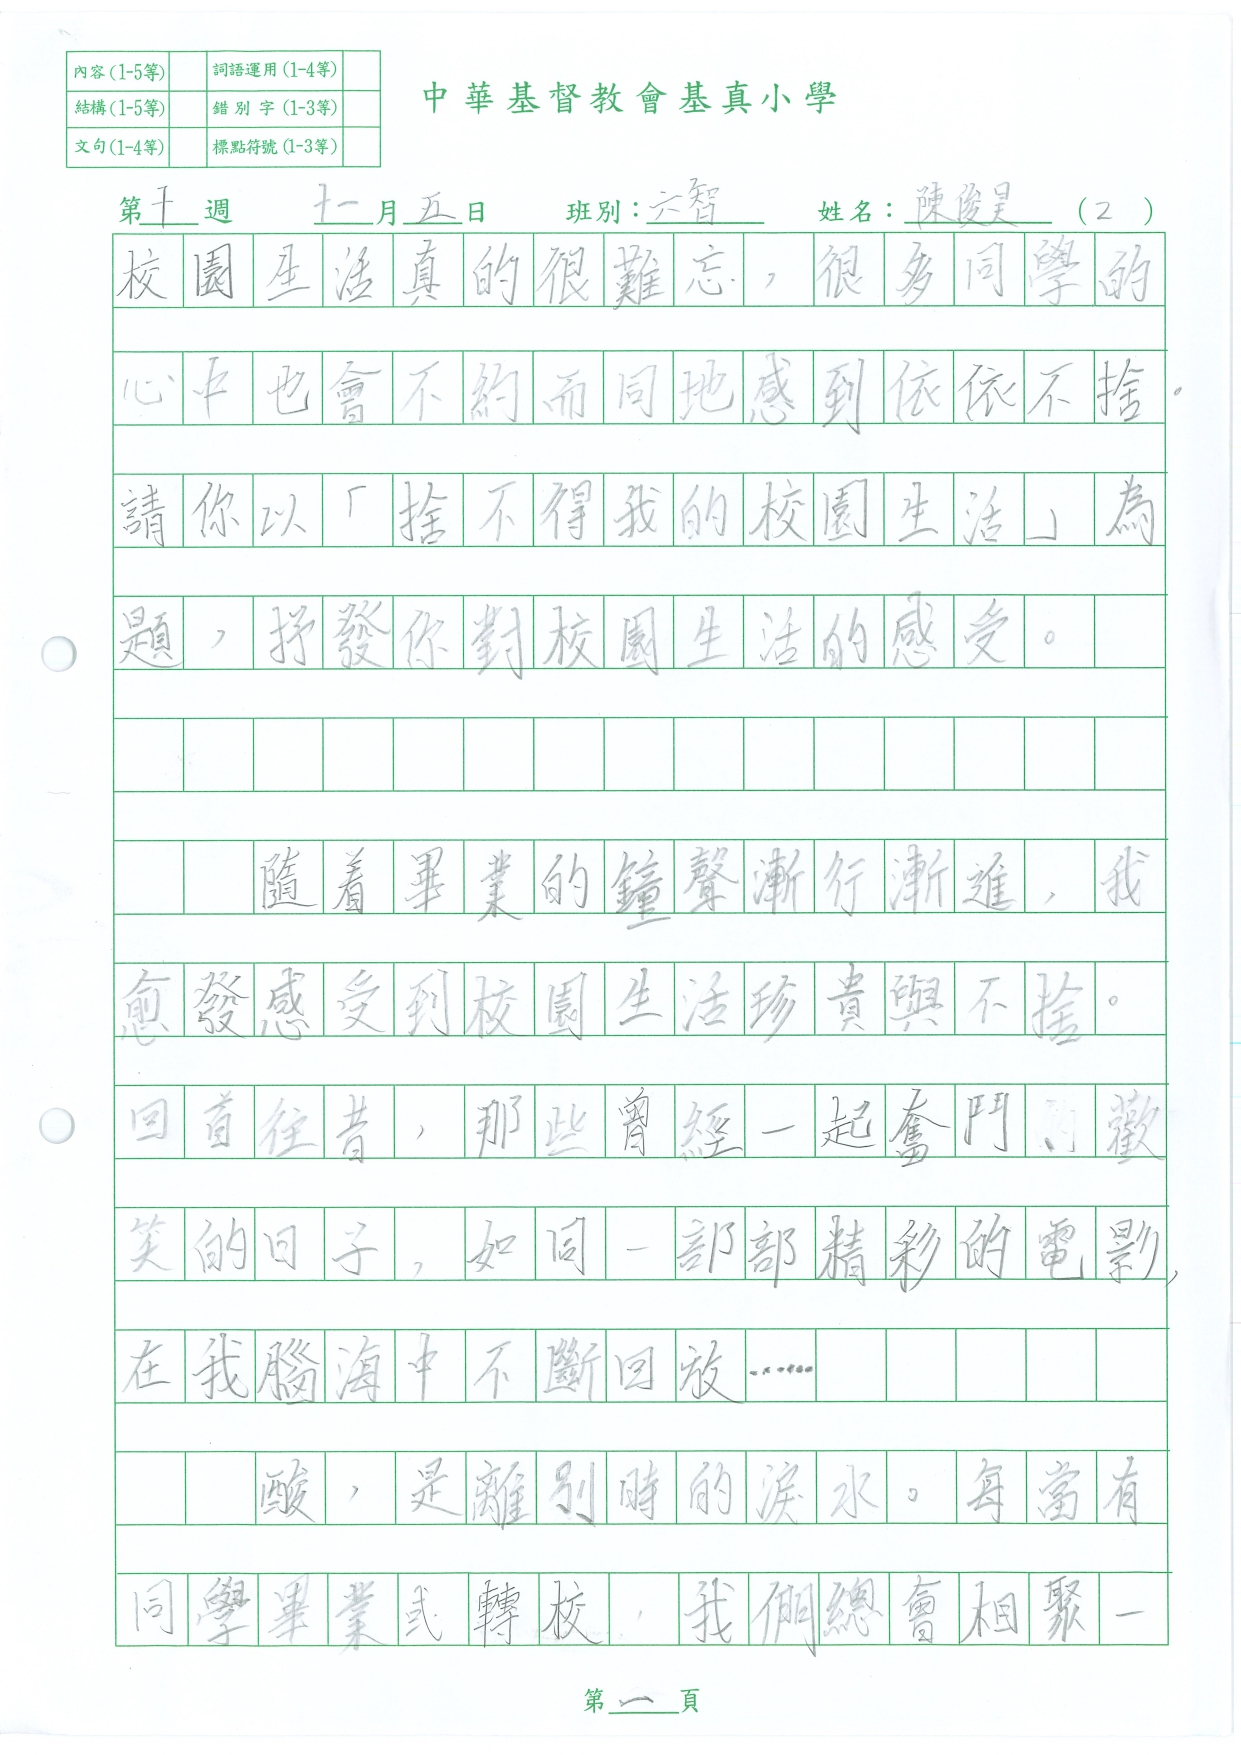 內容(1-5等) 詞語運用(1-4等)
結構(1-5等) 錯別字(1-3等)
文句(1-4等) 標點符號(1-3等)
中華基督教會基真小學
第十週 十一月五日 班別：六智 姓名：陳俊昊 (2)
校園生活真的很難忘，很多同學的
心中也會不約而同地感到依依不捨。
請你以「捨不得我的校園生活」為
題，抒發你對校園生活的感受。
隨着畢業的鐘聲漸行漸進，我
愈發感受到校園生活珍貴與不捨。
回首往昔，那些曾經一起奮鬥的歡
笑的日子，如同一部部精彩的電影，
在我腦海中不斷回放……
酸，是離別時的淚水。每當有
同學畢業或轉校，我們總會相聚一
第一頁